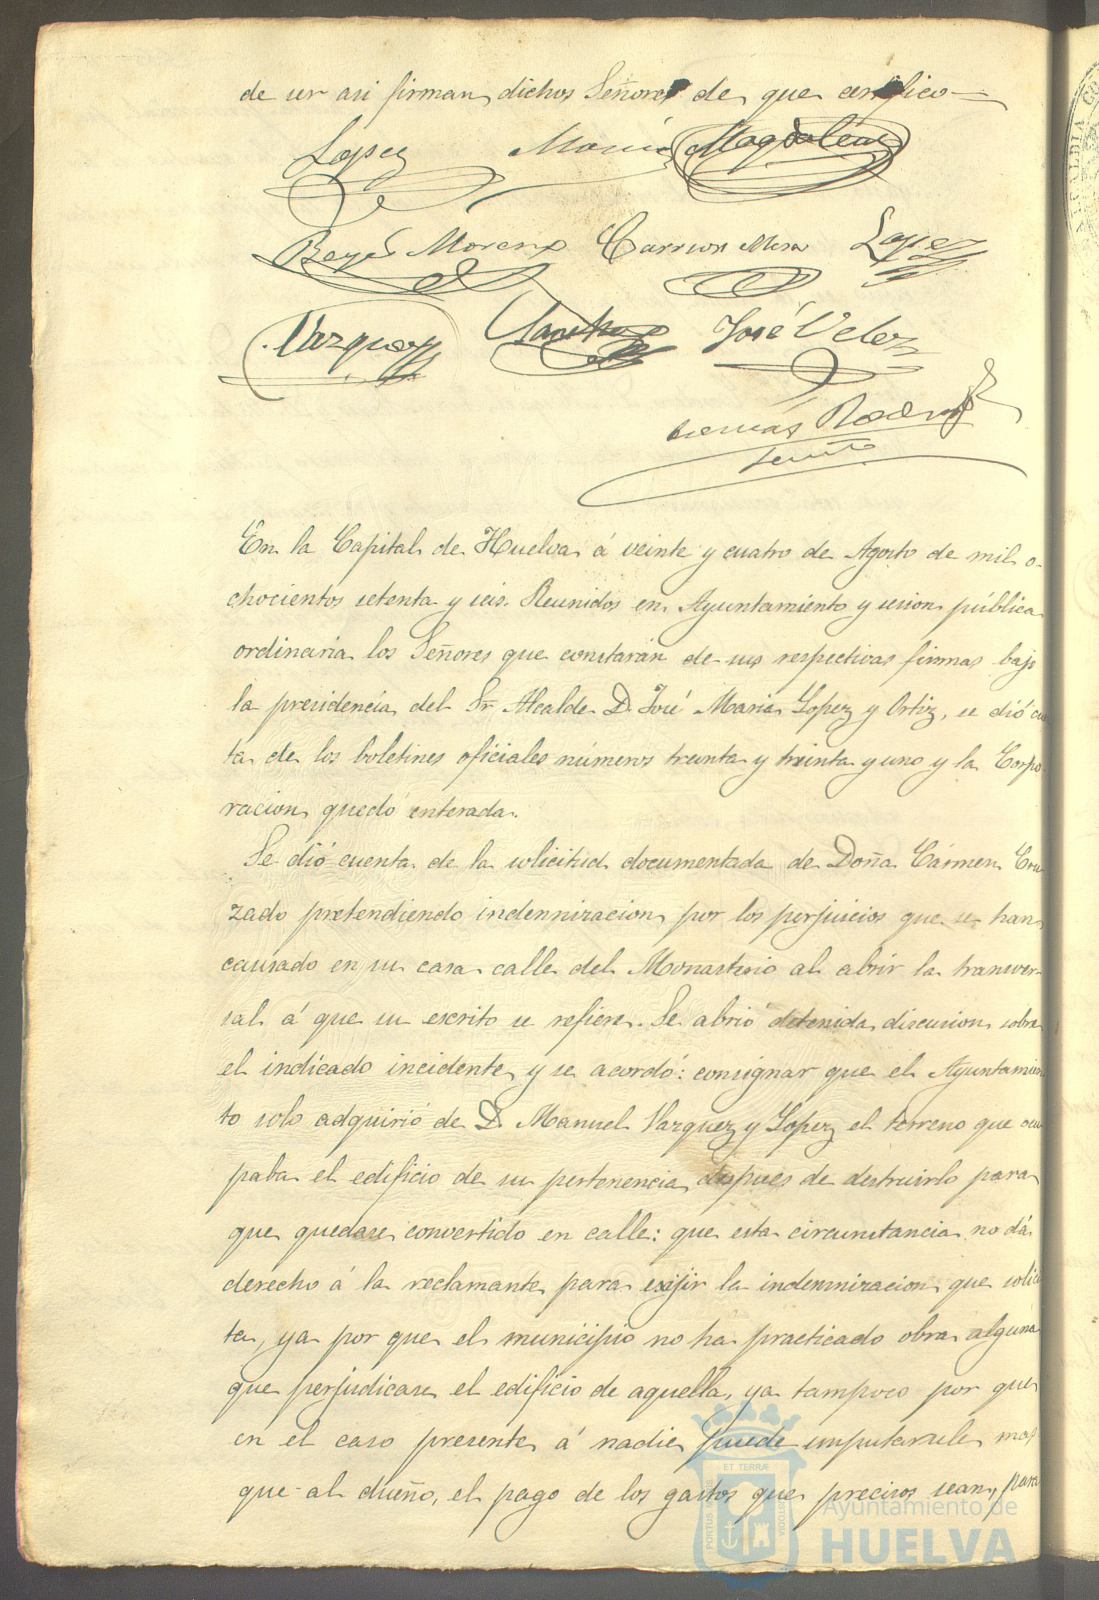 de ser asi firman dichos Señores de que certifico
Lopez Magdalena
Reyes Moreno Carrion Mora Lopez
Vazquez Sanchez José Velez
Tomás
En la Capital de Huelva á veinte y cuatro de Agosto de mil o-
chocientos setenta y seis. Reunidos en Ayuntamiento y sesion pública
ordinaria los Señores que constarán de sus respectivas firmas bajo
la presidéncia del Sr. Alcalde D. José Maria Lopez y Ortiz, se dió cuen
ta de los boletines oficiales números treinta y treinta y uno y la Corpo
racion quedó enterada.
Se dió cuenta de la solicitud documentada de Doña Cármen Cru
zado pretendiendo indemnizacion por los perjuicios que se han
causado en su casa calle del Monasterio al abrir la transver-
sal á que su escrito se refiere. Se abrió detenida discusion sobre
el indicado incidente y se acordó: consignar que el Ayuntamien
to solo adquirió de D. Manuel Vazquez y Lopez el terreno que ocu
paba el edificio de su pertenencia despues de destruirlo para
que quedase convertido en calle: que esta circunstancia no dá
derecho á la reclamante para exijir la indemnizacion que solici
ta, ya por que el municipio no ha practicado obra alguna
que perjudicase el edificio de aquella, ya tampoco por que
en el caso presente á nadie puede imputarsele mas
que al dueño, el pago de los gastos que precisos sean, para
ET TERRÆ
PORTUS MARIS
CUSTODIA
Ayuntamiento de
HUELVA
ALCALDIA CO